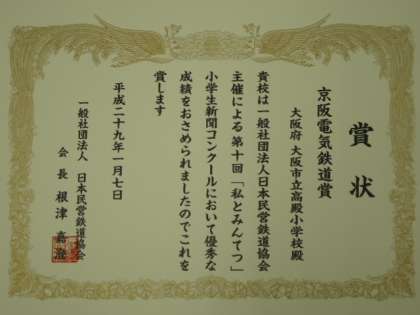 賞状
京阪電気鉄道賞
大阪府 大阪市立高殿小学校殿
貴校は一般社団法人日本民営鉄道協会
主催による第十回「私とみんてつ」
小学生新聞コンクールにおいて優秀な
成績をおさめられましたのでこれを
賞します
平成二十九年一月七日
一般社団法人 日本民営鉄道協会
会長 根津嘉澄